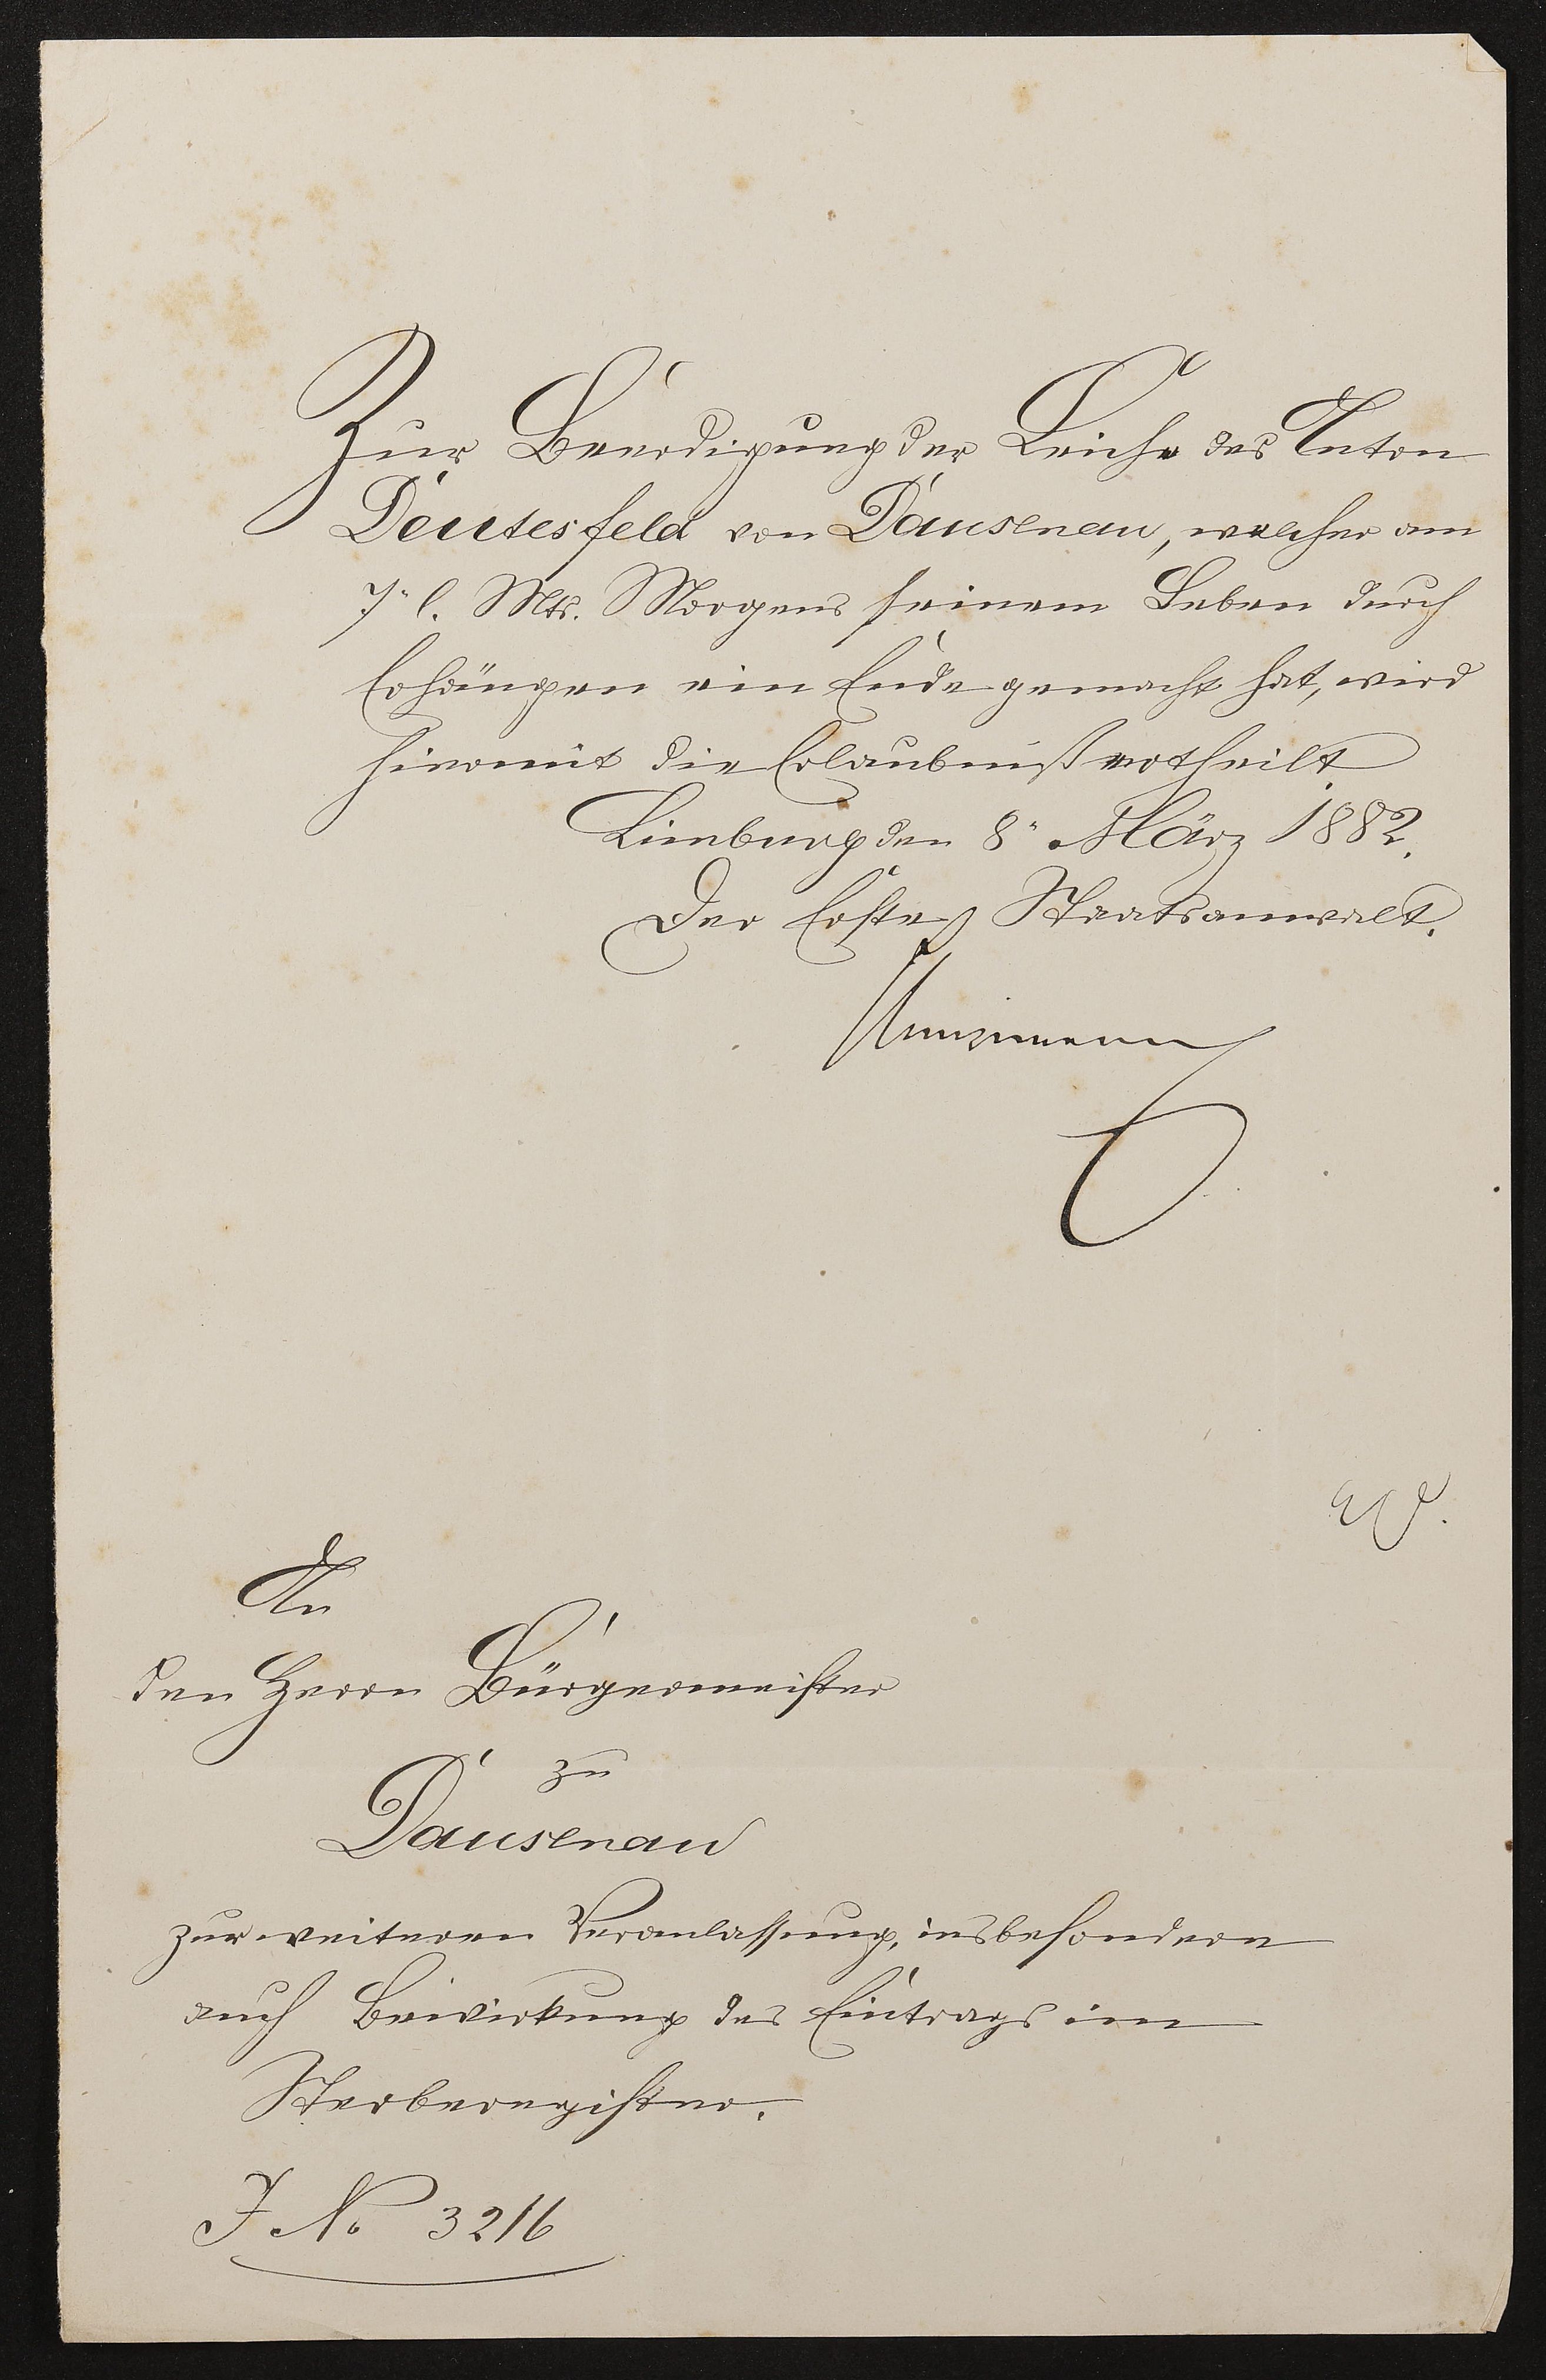 Zur Beerdigung der Leiche des Anton
Deutesfeld von Dausenau, welcher am
7. l. Mts. Morgens seinem Leben durch
Erhängen ein Ende gemacht hat, wird
hiermit die Erlaubniß ertheilt
Limburg den 8. März 1882.
Der Erste Staatsanwalt.
An
den Herrn Bürgermeister
zu
Dausenau
zur weiteren Veranlassung, insbesondere
auch Bewirkung des Eintrags im
Sterberegister.
J. No 3216